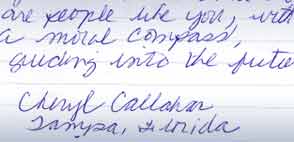 are people like you, with
a moral compass,
guiding into the future
Cheryl Callahan
Tampa, Florida